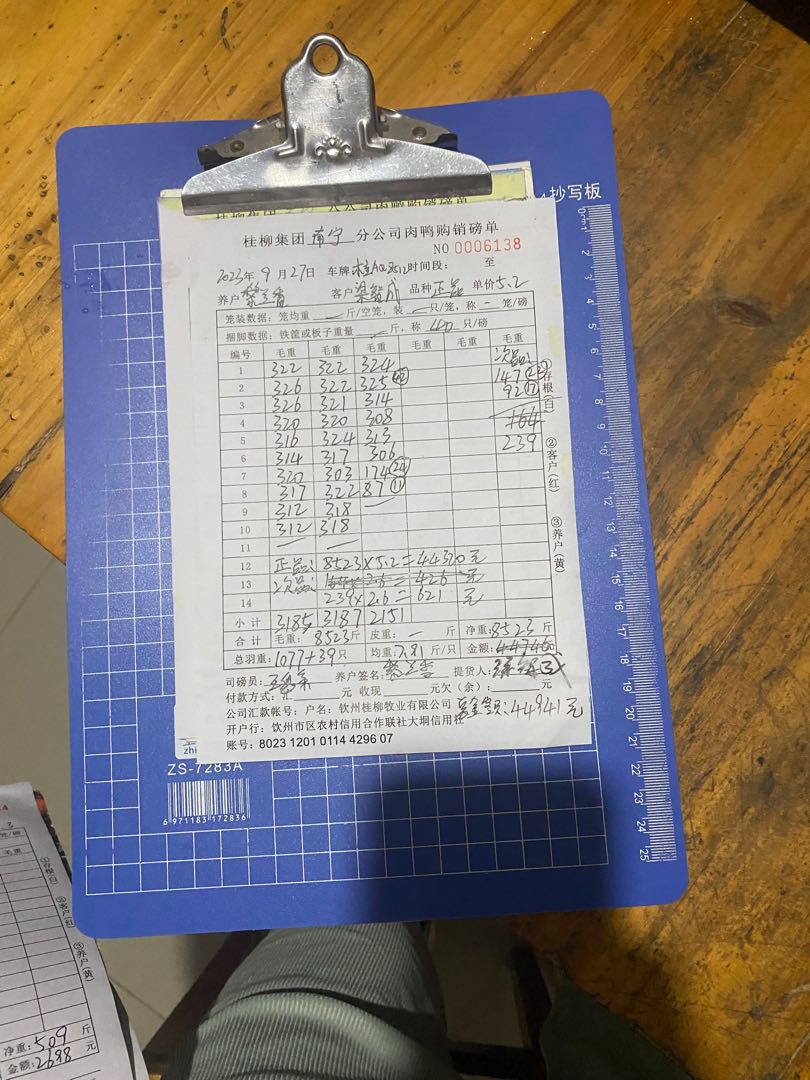 抄写板
桂柳集团 南宁 分公司肉鸭购销磅单
NO 0006138
2023年 9 月 27日 车牌: 时间段: 至
养户: 客户: 品种 正品 单价 5.2
笼装数据: 笼均重 — 斤/空笼, 装 — 只/笼, 称 — 笼/磅
捆脚数据: 铁筐或板子重量 — 斤, 称 40 只/磅
编号 毛重 毛重 毛重 毛重 毛重 毛重
次品:
1 322 322 324 147 (22)
2 326 322 325 (42) 92 (17)
3 326 321 314
4 320 320 308 164
5 316 324 313 239
6 314 317 306
7 320 303 174 (24)
8 317 322 87 (11)
9 312 318 —
10 312 318
11 — —
12 正品: 8523×5.2=44320元
13 次品: 2.6= 426 元
14 239×2.6= 621 元
小计 3185 3187 2151
合计 毛重: 8523斤 皮重: — 斤 净重: 8523 斤
总羽重: 1077+39只 均重: 7.91 斤/只 金额: 44746
司磅员: 养户签名: 提货人:
付款方式: 汇 元 收现 元欠(余): 元
公司汇款帐号: 户名: 钦州桂柳牧业有限公司 总金额: 44941元
开户行: 钦州市区农村信用合作联社大垌信用社
账号: 8023 1201 0114 4296 07
①存根(白)
②客户(红)
③养户(黄)
zhi
ZS-7283A
6 971183 172836
0 1 2 3 4 5 6 7 8 9 10 11 12 13 14 15 16 17 18 19 20 21 22 23 24 25
笼/磅
毛重
①存根(白)
②客户(红)
③养户(黄)
净重: 509 斤
金额: 2698 元